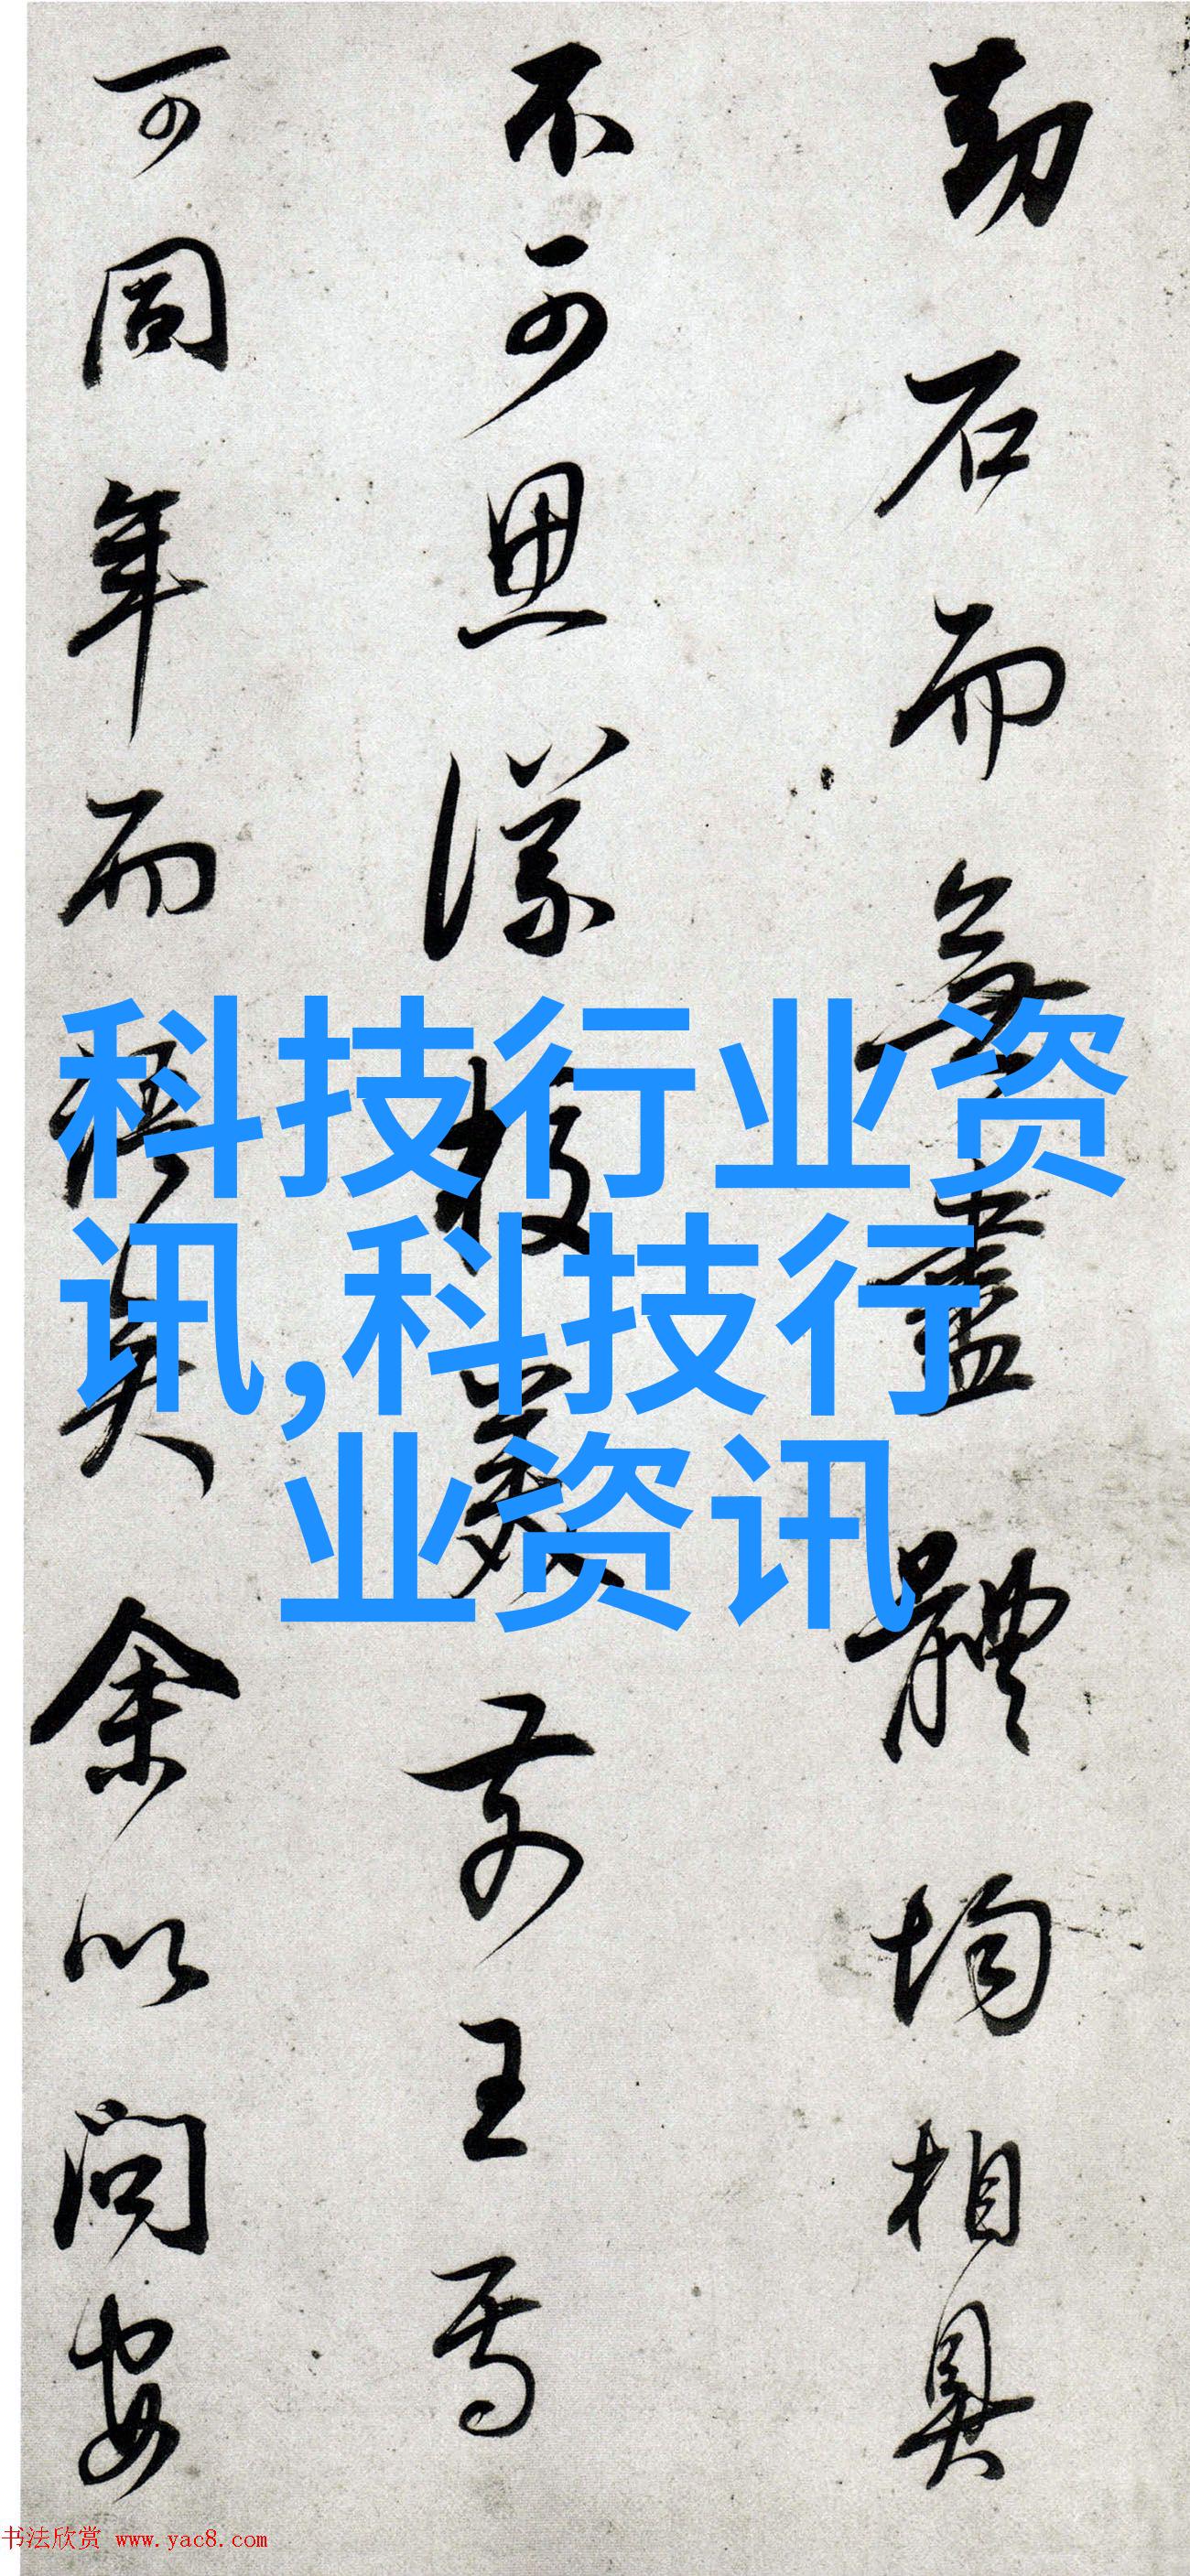 劫石而無盡體均相具
不可思議校義前王焉
可同年而語矣余以問安
科技行业资
讯,科技行
业资讯
书法欣赏 www.yac8.com